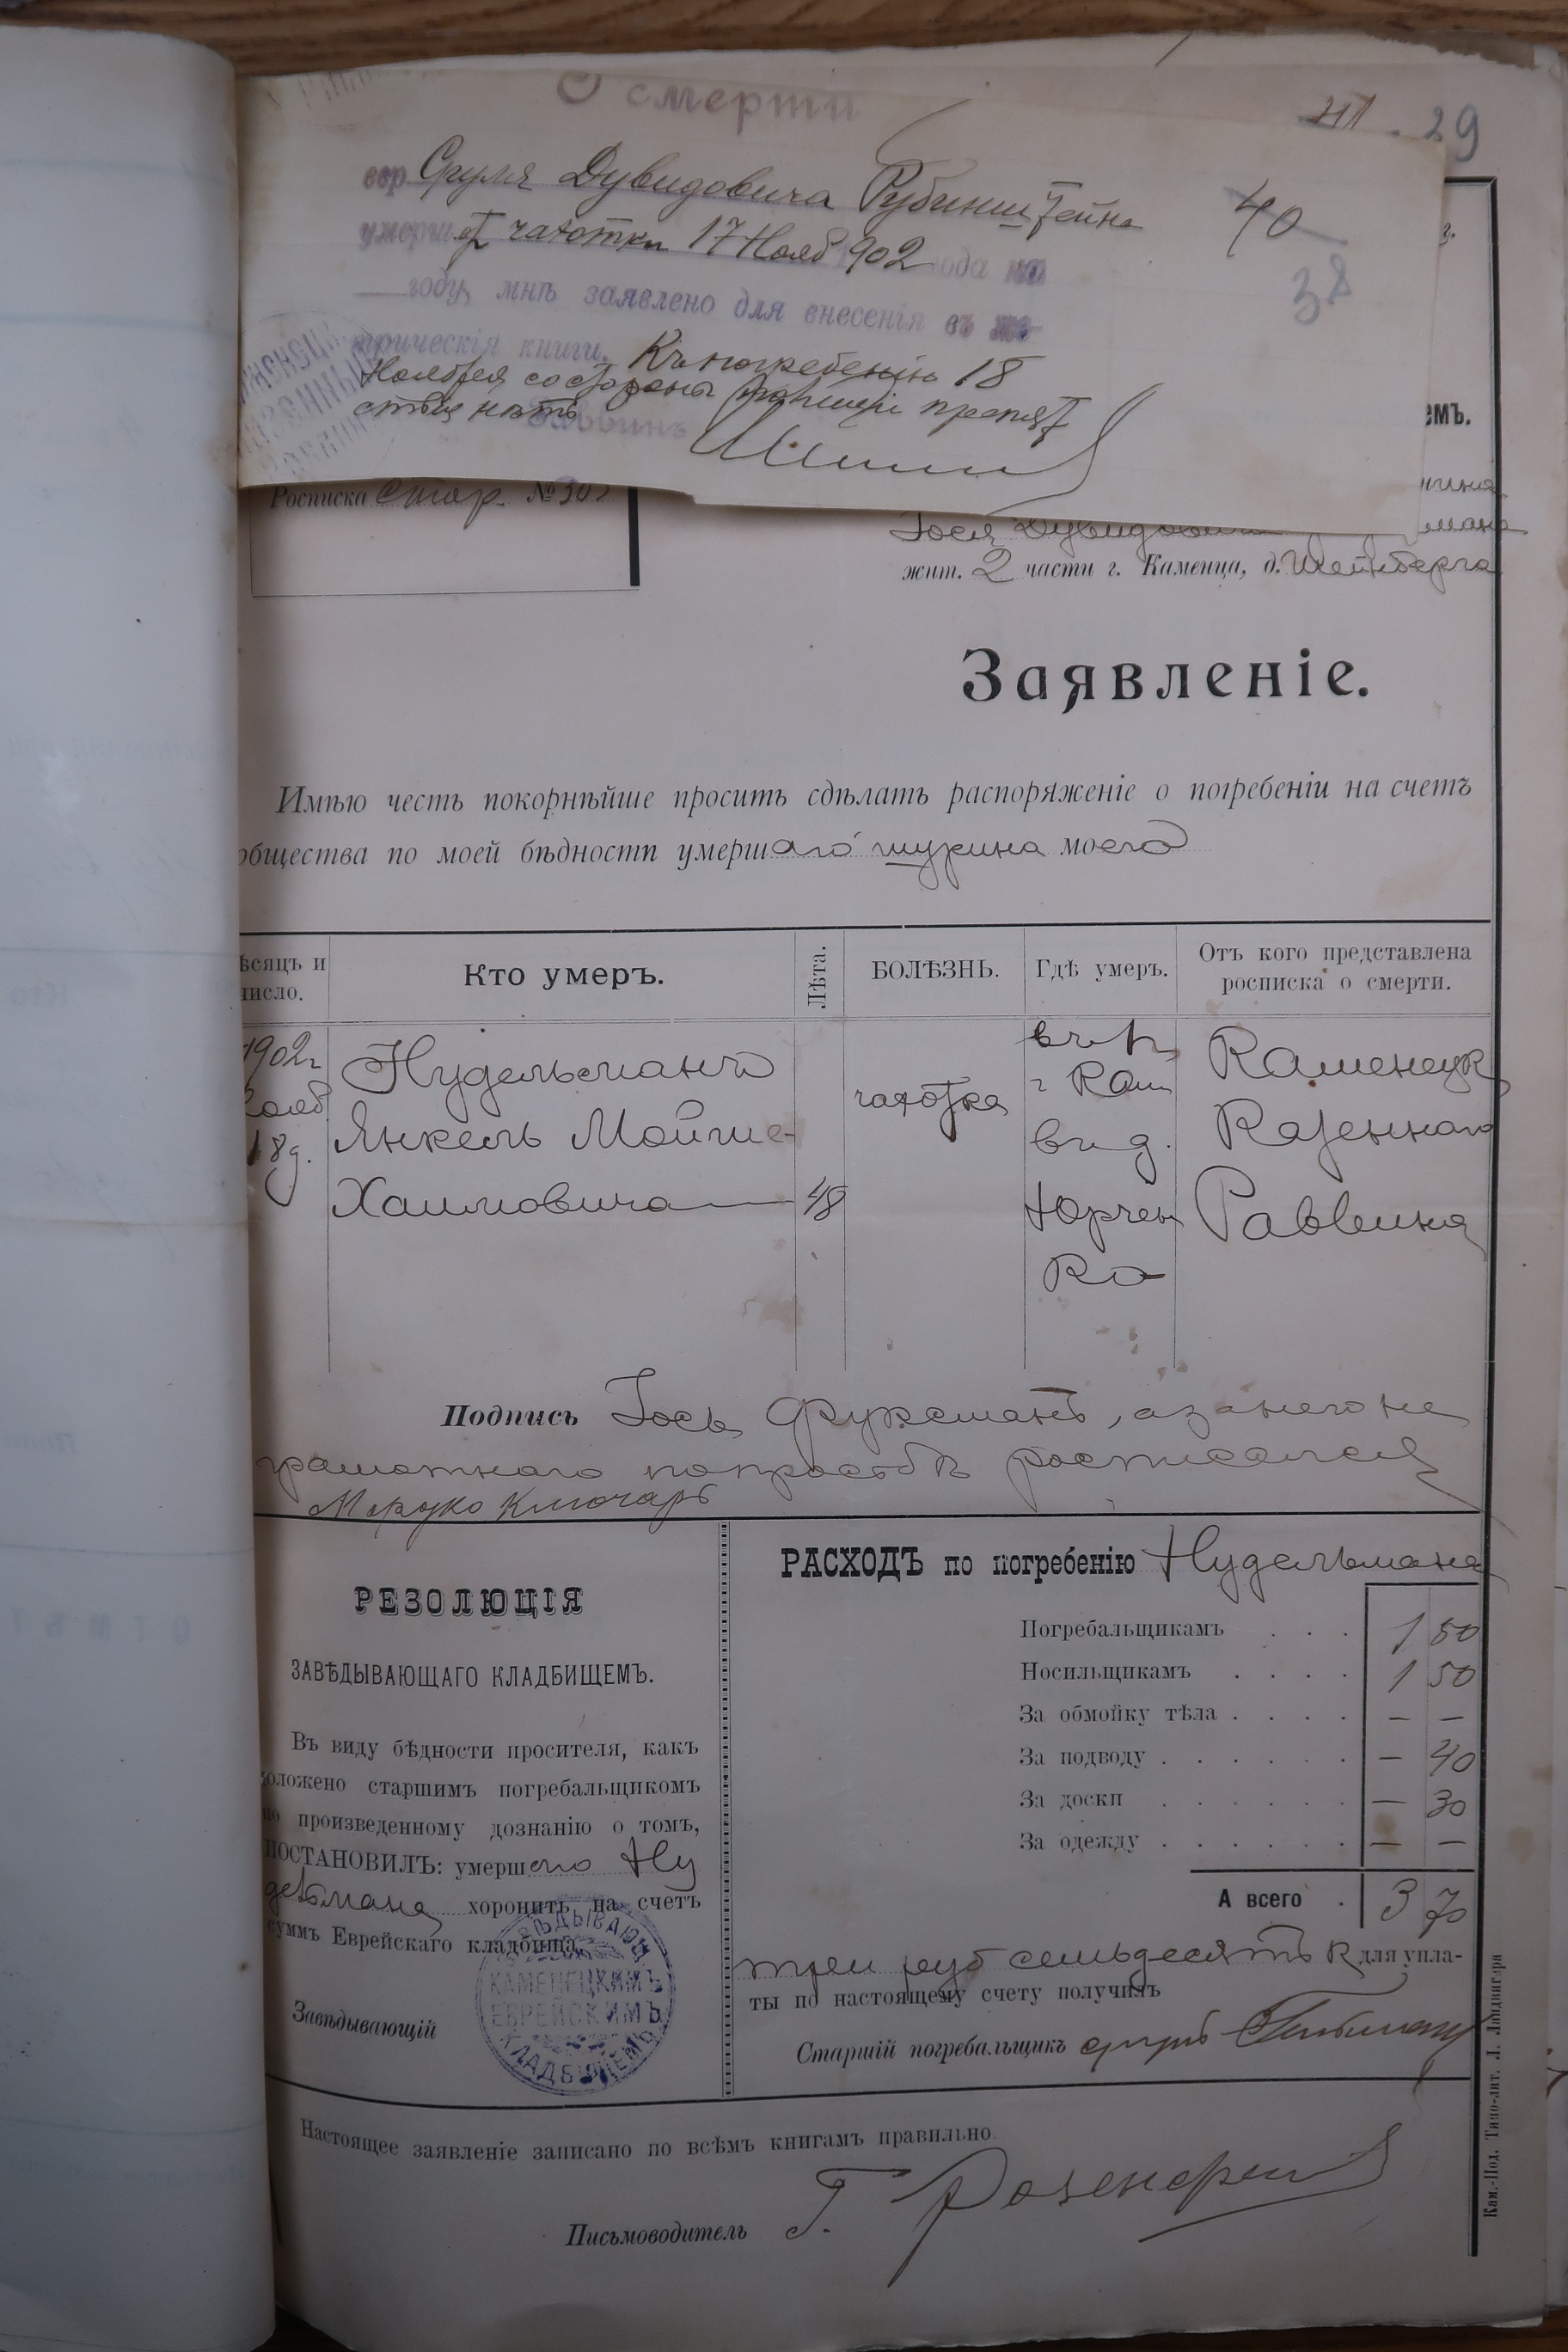 О смерти
29
евр. Сруля Дувидовича Рубинштейна
40
умерш. от чахотки 17 Нояб 902 года на
38
году, мнѣ заявлено для внесенія въ ме-
трическія книги. Къ погребенію 18
Ноября со стороны полиціи препят
ствія нѣтъ
Раввинъ
г.
емъ.
Росписка Стар. № 302
Іося Дувидов мана
жит. 2 части г. Каменца, д. Шейнберга
Заявленіе.
Имѣю честь покорнѣйше просить сдѣлать распоряженіе о погребеніи на счетъ
общества по моей бѣдности умершаго шурина моего
ѣсяцъ и число.
Кто умеръ.
Лѣта.
БОЛѢЗНЬ.
Гдѣ умеръ.
Отъ кого представлена росписка о смерти.
1902 г
Нояб
18 д.
Нудельманъ
Янкель Мойше-
Хаимовича
48
чахотка
г Кам
в д.
Юрчен
ко
Каменецк
Казеннаго
Раввина
Подпись Іось Фурманъ, а за него не
грамотнаго по просьбѣ росписался
Мордко Ключарь
РЕЗОЛЮЦІЯ
ЗАВѢДЫВАЮЩАГО КЛАДБИЩЕМЪ.
Въ виду бѣдности просителя, какъ
доложено старшимъ погребальщикомъ
по произведенному дознанію о томъ,
ПОСТАНОВИЛЪ: умершаго Ну
дельмана хоронить на счетъ
суммъ Еврейскаго кладбища.
Завѣдывающій
ЗАВѢДЫВАЮЩ
КАМЕНЕЦКИМЪ
ЕВРЕЙСКИМЪ
КЛАДБИЩЕМЪ
РАСХОДЪ по погребенію Нудельмана
Погребальщикамъ . . . 1 50
Носильщикамъ . . . . 1 50
За обмойку тѣла . . . . — —
За подводу . . . . . . — 40
За доски . . . . . . — 30
За одежду . . . . . . — —
А всего . 3 70
три руб семьдесятъ к для упла-
ты по настоящему счету получилъ
Старшій погребальщикъ
Настоящее заявленіе записано по всѣмъ книгамъ правильно
Письмоводитель Г. Розенфельд
Кам.-Под. Типо-лит. Л. Ландвигера